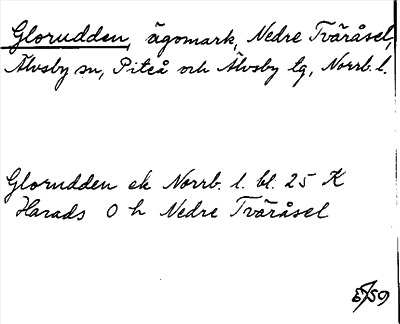 Glorudden, ägomark, Nedre Tväråsel,
Älvsby sn, Piteå och Älvsby tg, Norrb. l.
Glorudden ek Norrb. l. bl. 25 K
Harads O h Nedre Tväråsel